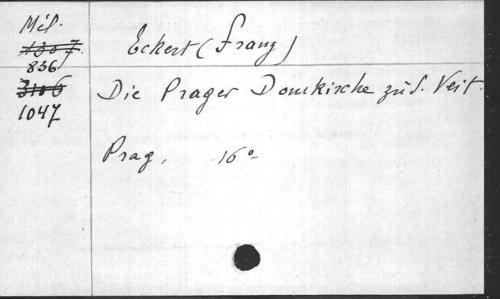 Mil.
1307.
836
3106
1047
Eckert (Franz)
Die Prager Domkirche zu S. Veit.
Prag, 16°